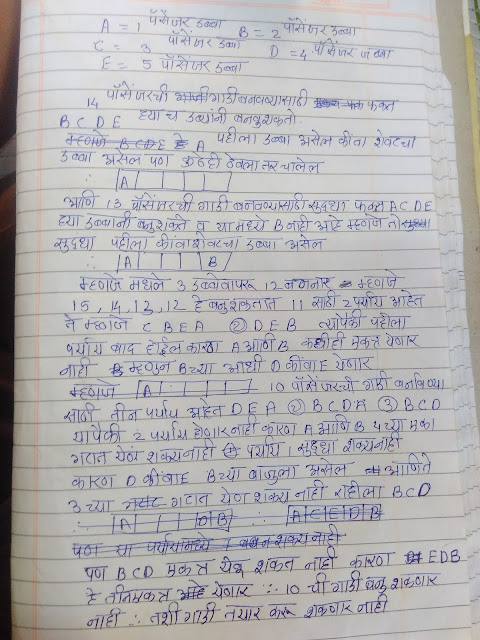 A = 1 पॅसेंजर डब्बा B = 2 पॉसेंजर डब्बा
C = 3 पॉसेंजर डब्बा D = 4 पॉसेंजर डब्बा
E = 5 पॉसेंजर डब्बा
14 पॉसेंजरची गाडी बनवण्यासाठी फक्त
B C D E ह्याच डब्यांनी बनवूशकतो.
म्हणजे A पहीला डब्बा असेल कींवा शेवटचा
डब्बा असेल पण कुठही ठेवला तर चालेल
∴ A
आणि 13 पॉसेंजरची गाडी बनवण्यासाठी सुद्धा फक्त A C D E
ह्या डब्यांनी बनुशकते व या मध्ये B नाही आहे म्हणजे तो
सुद्धा पहीला कींवा शेवटचा डब्बा असेल
∴ A B
म्हणजे मधले 3 डब्बे वापरू 12 बनणार म्हणजे
15, 14, 13, 12 हे बनुशकतात 11 साठी 2 पर्याय आहेत
ते म्हणजे C B E A ② D E B त्यापैकी पहीला
पर्याय बाद होईल कारण A आणि B कधीही एकत्र येणार
नाही म्हणून B च्या आधी D कींवा E येणार
म्हणजे A 10 पॉसेंजरची गाडी बनविण्या
साठी तीन पर्याय आहेत D E A ② B C D A ③ B C D
यापैकी 2 पर्याय होणार नाही कारण A आणि B 4 च्या एका
गटात येणं शक्य नाही पर्याय 1 सुद्धा शक्य नाही
कारण D कींवा E B च्या बाजुला असेल आणि ते
3 च्या गटात येण शक्य नाही राहीला B C D
∴ A D B ∴ A C E D B
पण B C D एकत्र येवू शकत नाही कारण E D B
हे तीन एकत्र येणार ∴ 10 ची गाडी बनु शकणार
नाही ∴ तशी गाडी तयार करू शकणार नाही